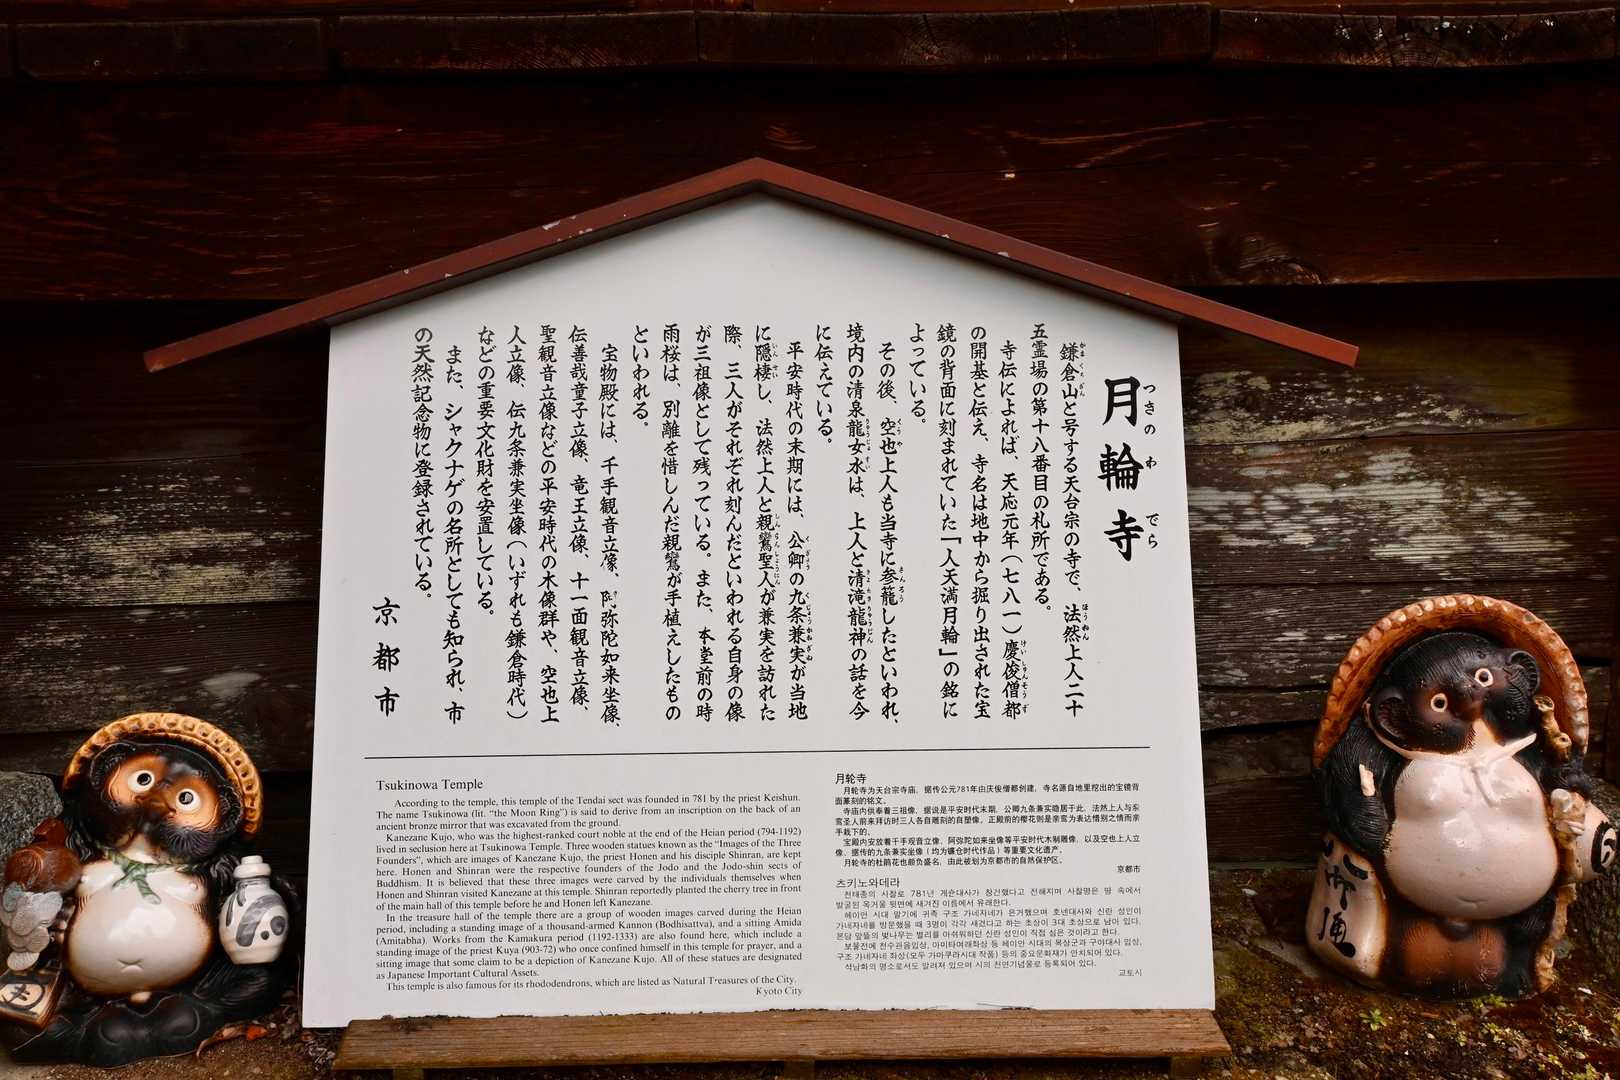 月輪寺
つきのわでら
鎌倉山と号する天台宗の寺で、法然上人二十
五霊場の第十八番目の札所である。
寺伝によれば、天応元年(七八一)慶俊僧都
の開基と伝え、寺名は地中から掘り出された宝
鏡の背面に刻まれていた「人天満月輪」の銘に
よっている。
その後、空也上人も当寺に参籠したといわれ、
境内の清泉龍女水は、上人と清滝龍神の話を今
に伝えている。
平安時代の末期には、公卿の九条兼実が当地
に隠棲し、法然上人と親鸞聖人が兼実を訪れた
際、三人がそれぞれ刻んだといわれる自身の像
が三祖像として残っている。また、本堂前の時
雨桜は、別離を惜しんだ親鸞が手植えしたもの
といわれる。
宝物殿には、千手観音立像、阿弥陀如来坐像、
伝善哉童子立像、竜王立像、十一面観音立像、
聖観音立像などの平安時代の木像群や、空也上
人立像、伝九条兼実坐像(いずれも鎌倉時代)
などの重要文化財を安置している。
また、シャクナゲの名所としても知られ、市
の天然記念物に登録されている。
京都市
Tsukinowa Temple
According to the temple, this temple of the Tendai sect was founded in 781 by the priest Keishun.
The name Tsukinowa (lit. "the Moon Ring") is said to derive from an inscription on the back of an
ancient bronze mirror that was excavated from the ground.
Kanezane Kujo, who was the highest-ranked court noble at the end of the Heian period (794-1192)
lived in seclusion here at Tsukinowa Temple. Three wooden statues known as the "Images of the Three
Founders", which are images of Kanezane Kujo, the priest Honen and his disciple Shinran, are kept
here. Honen and Shinran were the respective founders of the Jodo and the Jodo-shin sects of
Buddhism. It is believed that these three images were carved by the individuals themselves when
Honen and Shinran visited Kanezane at this temple. Shinran reportedly planted the cherry tree in front
of the main hall of this temple before he and Honen left Kanezane.
In the treasure hall of the temple there are a group of wooden images carved during the Heian
period, including a standing image of a thousand-armed Kannon (Bodhisattva), and a sitting Amida
(Amitabha). Works from the Kamakura period (1192-1333) are also found here, which include a
standing image of the priest Kuya (903-72) who once confined himself in this temple for prayer, and a
sitting image that some claim to be a depiction of Kanezane Kujo. All of these statues are designated
as Japanese Important Cultural Assets.
This temple is also famous for its rhododendrons, which are listed as Natural Treasures of the City.
Kyoto City
月轮寺
月轮寺为天台宗寺庙，据传公元781年由庆俊僧都创建，寺名源自地里挖出的宝镜背
面篆刻的铭文。
寺庙内供奉着三祖像，据说是平安时代末期，公卿九条兼实隐居于此，法然上人与亲
鸾圣人前来拜访时三人各自雕刻的自塑像，正殿前的樱花则是亲鸾为表达惜别之情而亲
手栽下的。
宝殿内安放着千手观音立像、阿弥陀如来坐像等平安时代木制雕像，以及空也上人立
像、据传的九条兼实坐像（均为镰仓时代作品）等重要文化遗产。
月轮寺的杜鹃花也颇负盛名，由此被划为京都市的自然保护区。
京都市
츠키노와데라
천태종의 사찰로 781년 게슌대사가 창건했다고 전해지며 사찰명은 땅 속에서
발굴된 옥거울 뒷면에 새겨진 이름에서 유래한다.
헤이안 시대 말기에 귀족 구조 가네자네가 은거했으며 호넨대사와 신란 성인이
가네자네를 방문했을 때 3명이 각각 새겼다고 하는 초상이 3대 초상으로 남아 있다.
본당 앞뜰의 빛나무는 별리를 아쉬워하던 신란 성인이 직접 심은 것이라고 한다.
보물전에 천수관음입상, 아미타여래좌상 등 헤이안 시대의 목상군과 구야대사 입상,
구조 가네자네 좌상(모두 가마쿠라시대 작품) 등의 중요문화재가 안치되어 있다.
석남화의 명소로서도 알려져 있으며 시의 천연기념물로 등록되어 있다.
교토시